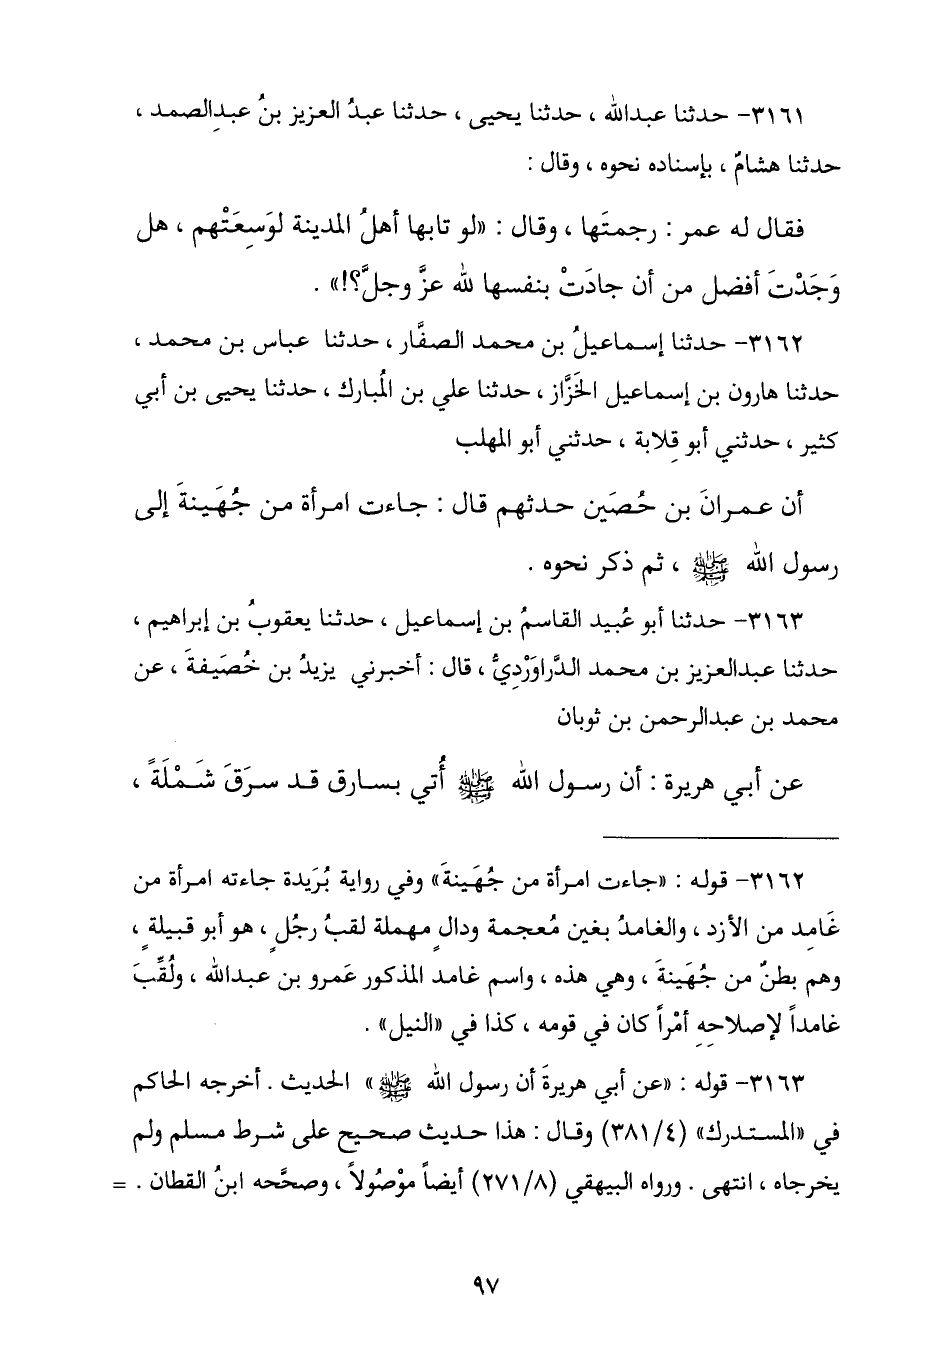 ٣١٦١- حدثنا عبدالله ، حدثنا يحيى ، حدثنا عبدُ العزيز بنُ عبدِالصمد ،
حدثنا هشامٌ ، بإسناده نحوه ، وقال :
فقال له عمر : رجمتَها ، وقال : «لو تابها أهلُ المدينة لوَسِعَتْهم ، هل
وَجَدْتَ أفضل من أن جادَتْ بنفسها لله عزَّ وجلَّ؟!» .
٣١٦٢- حدثنا إسماعيلُ بن محمد الصفَّار ، حدثنا عباس بن محمد ،
حدثنا هارون بن إسماعيل الخَزَّاز ، حدثنا علي بن المُبارك ، حدثنا يحيى بن أبي
كثير ، حدثني أبو قِلابة ، حدثني أبو المهلب
أن عمرانَ بن حُصَين حدثهم قال : جاءت امرأة من جُهَينةَ إلى
رسول الله ﷺ ، ثم ذكر نحوه .
٣١٦٣- حدثنا أبو عُبيد القاسمُ بن إسماعيل ، حدثنا يعقوبُ بن إبراهيم ،
حدثنا عبدالعزيز بن محمد الدَّراوَرْدِيُّ ، قال : أخبرني يزيدُ بن خُصَيفةَ ، عن
محمد بن عبدالرحمن بن ثوبان
عن أبي هريرة : أن رسول الله ﷺ أُتي بسارق قد سرَقَ شَمْلَةً ،
٣١٦٢- قوله : «جاءت امرأة من جُهَينةَ» وفي رواية بُرَيدة جاءته امرأة من
غَامِد من الأزد ، والغامدُ بغين مُعجمة ودالٍ مهملة لقبُ رجُلٍ ، هو أبو قبيلةٍ ،
وهم بطنٌ من جُهَينةَ ، وهي هذه ، واسم غامد المذكور عَمرو بن عبدالله ، ولُقِّبَ
غامداً لإصلاحِهِ أمْراً كان في قومه ، كذا في «النيل» .
٣١٦٣- قوله : «عن أبي هريرةَ أن رسول الله ﷺ» الحديث . أخرجه الحاكم
في «المستدرك» (٣٨١/٤) وقال : هذا حديث صحيح على شرط مسلم ولم
يخرجاه ، انتهى . ورواه البيهقي (٢٧١/٨) أيضاً موْصُولاً ، وصحَّحه ابنُ القطان . =
٩٧